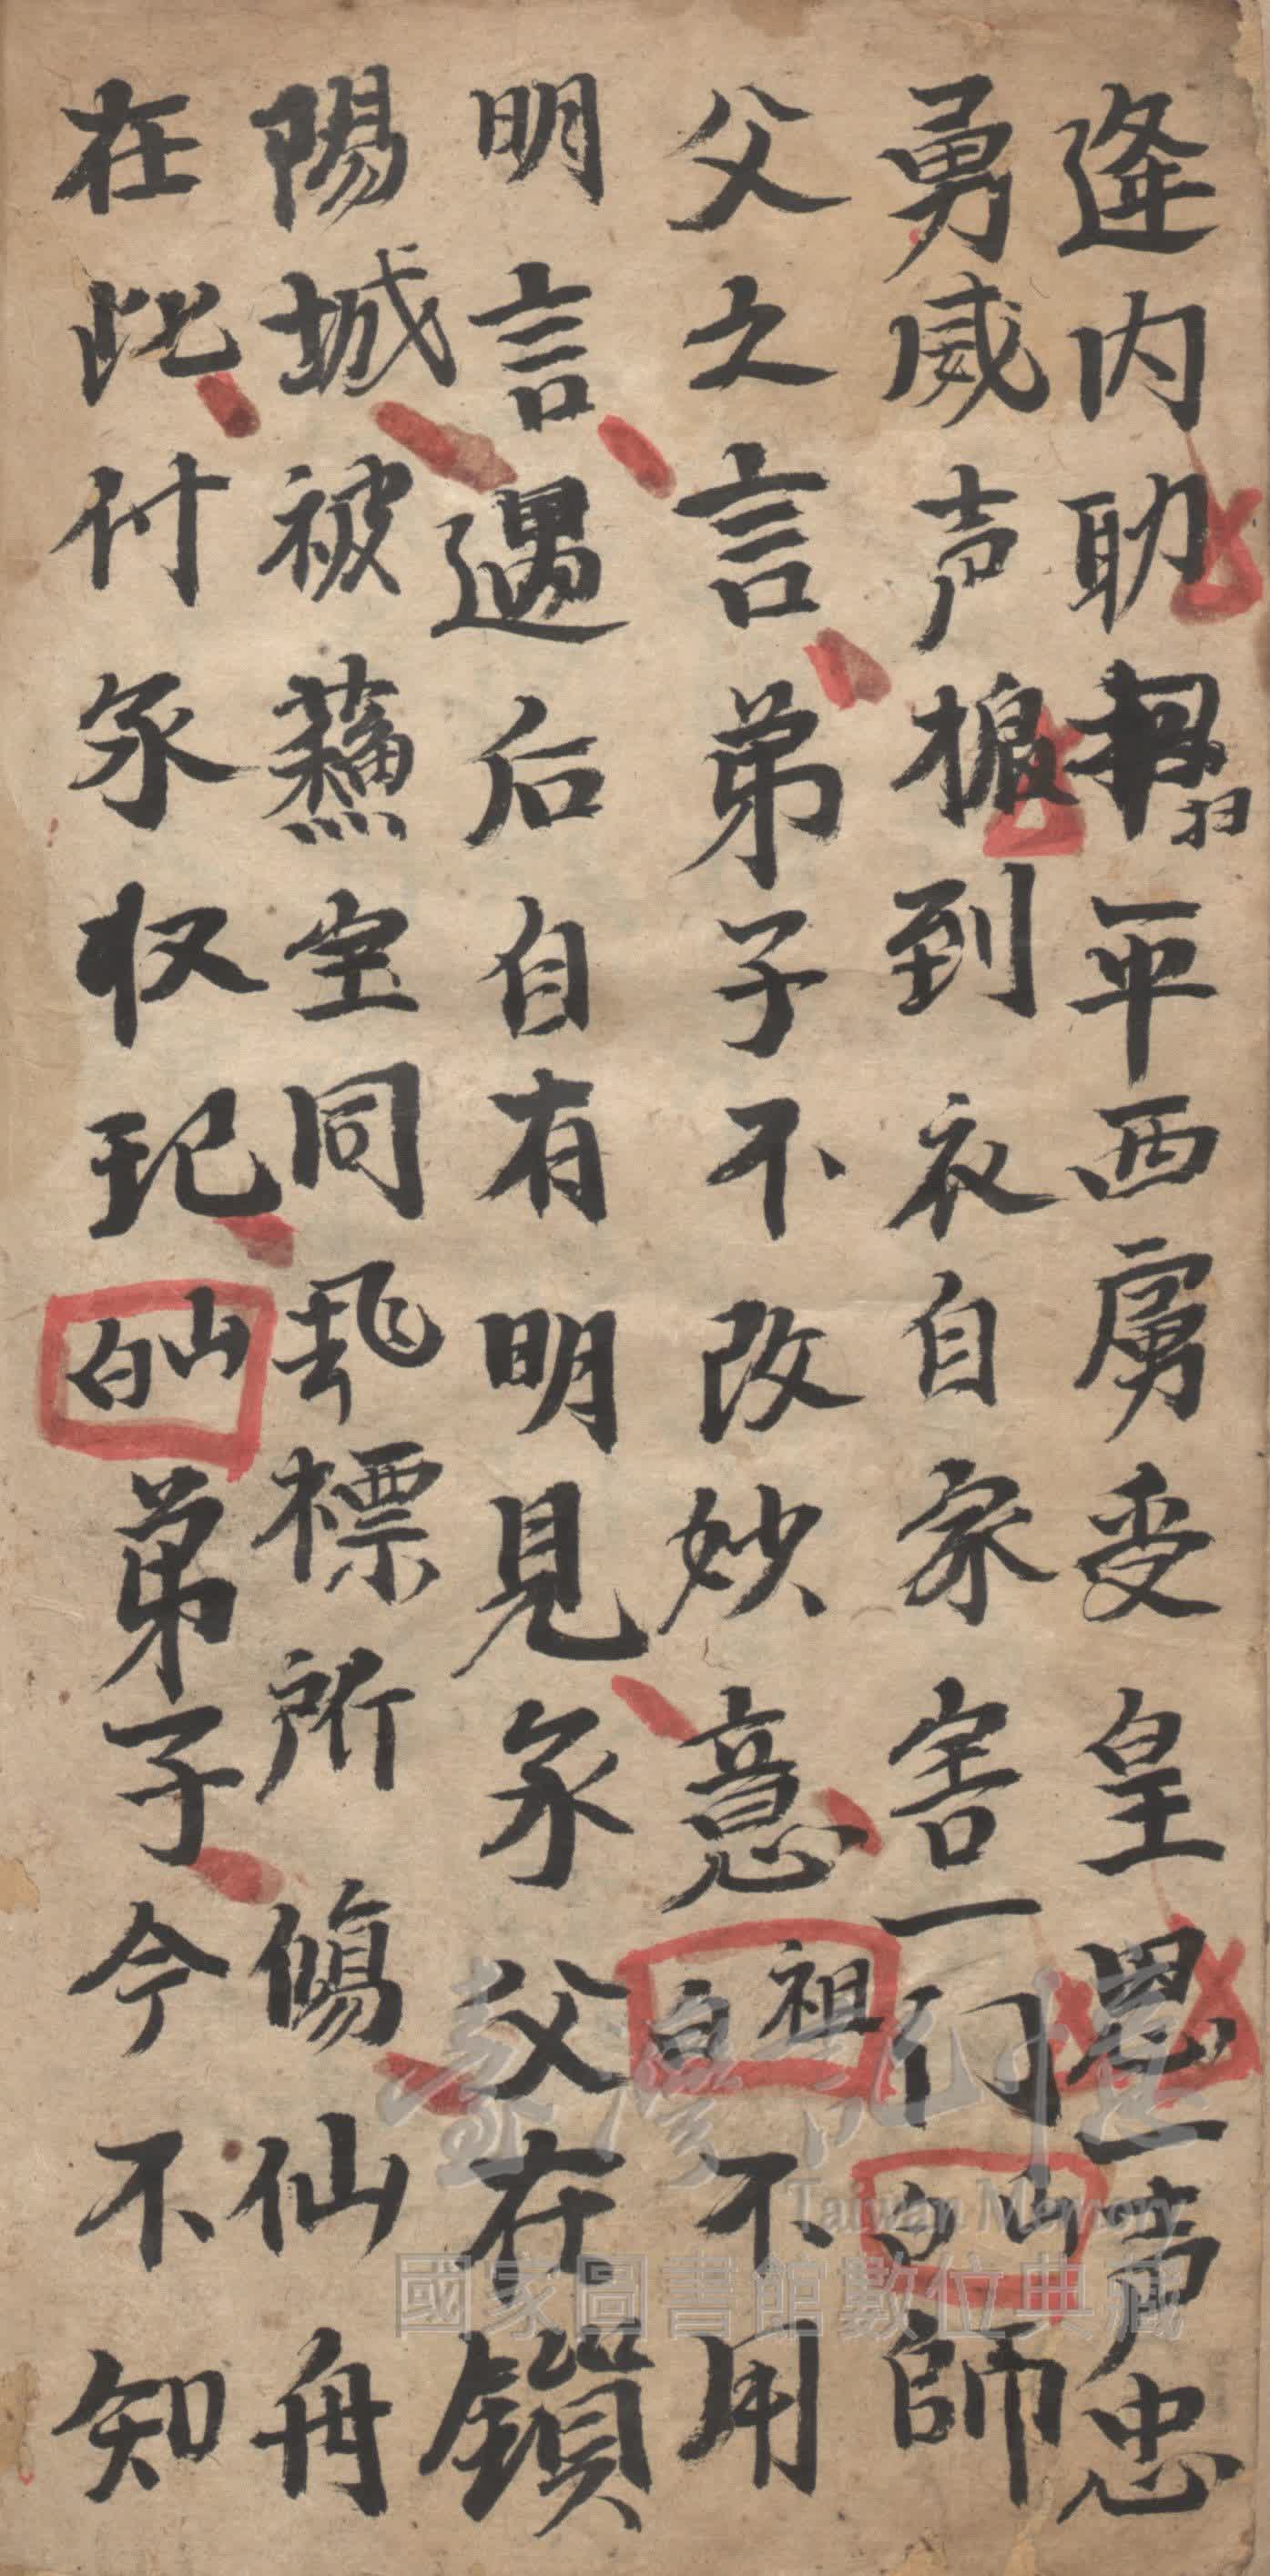 逢内助扫平西虜受皇恩一声忠
勇威声振到衣自家害一门山白師
父之言弟子不改妙意祖白不用
明言遇后自有明見永父在鎖
陽城被蘓宝同飛標所傷仙舟
在此付永权玘山白弟子今不知
臺灣記憶
Taiwan Memory
國家圖書館數位典藏